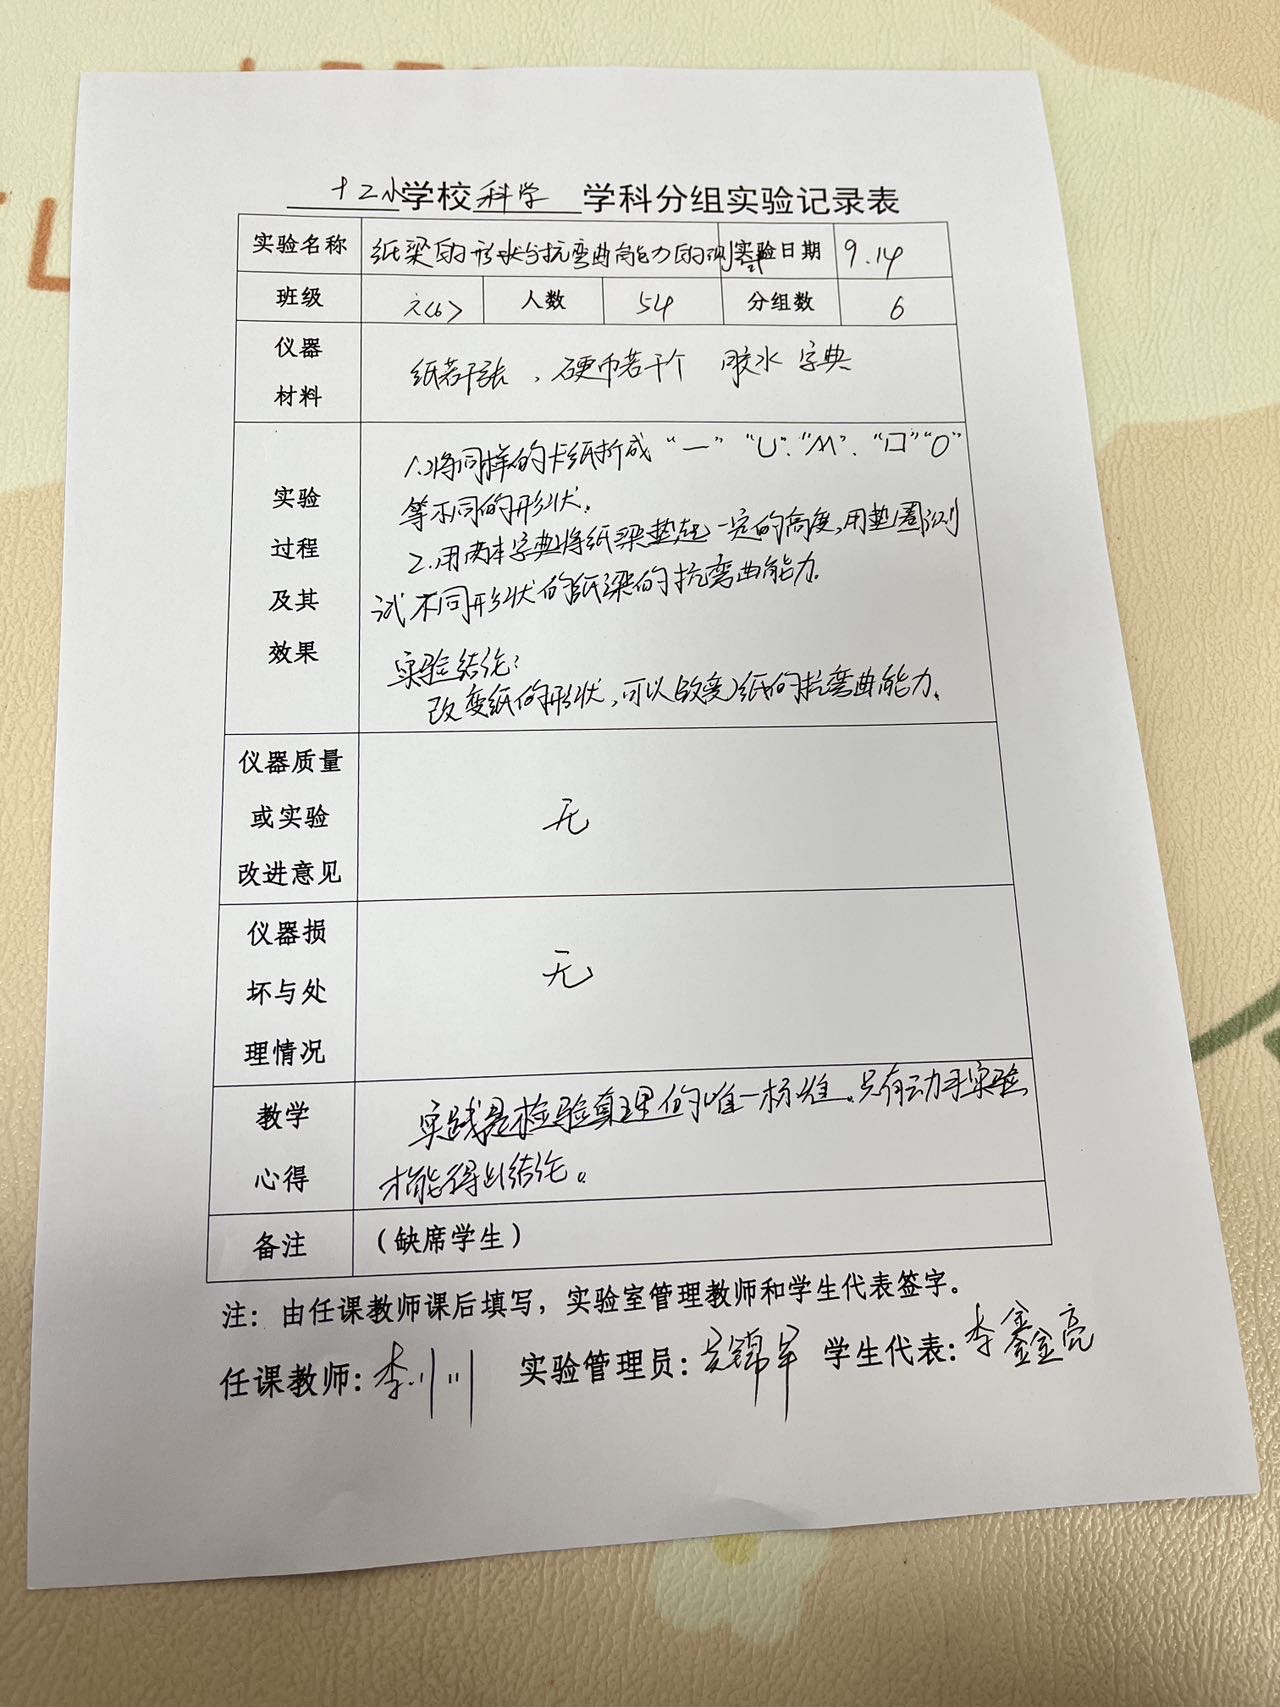 十二小学校科学 学科分组实验记录表
实验名称 纸梁的形状与抗弯曲能力的测试 实验日期 9.14
班级 六(6) 人数 54 分组数 6
仪器材料 纸若干张，硬币若干个 胶水 字典
实验过程及其效果
1.将同样的卡纸折成“一”“U”.“M”.“口”“O”
等不同的形状.
2.用两本字典将纸梁垫起一定的高度,用垫圈测
试不同形状的纸梁的抗弯曲能力.
实验结论：
改变纸的形状,可以改变纸的抗弯曲能力.
仪器质量或实验改进意见 无
仪器损坏与处理情况 无
教学心得 实践是检验真理的唯一标准.只有动手实验
才能得出结论。
备注 （缺席学生）
注：由任课教师课后填写，实验室管理教师和学生代表签字。
任课教师：李小川 实验管理员： 学生代表：李鑫亮